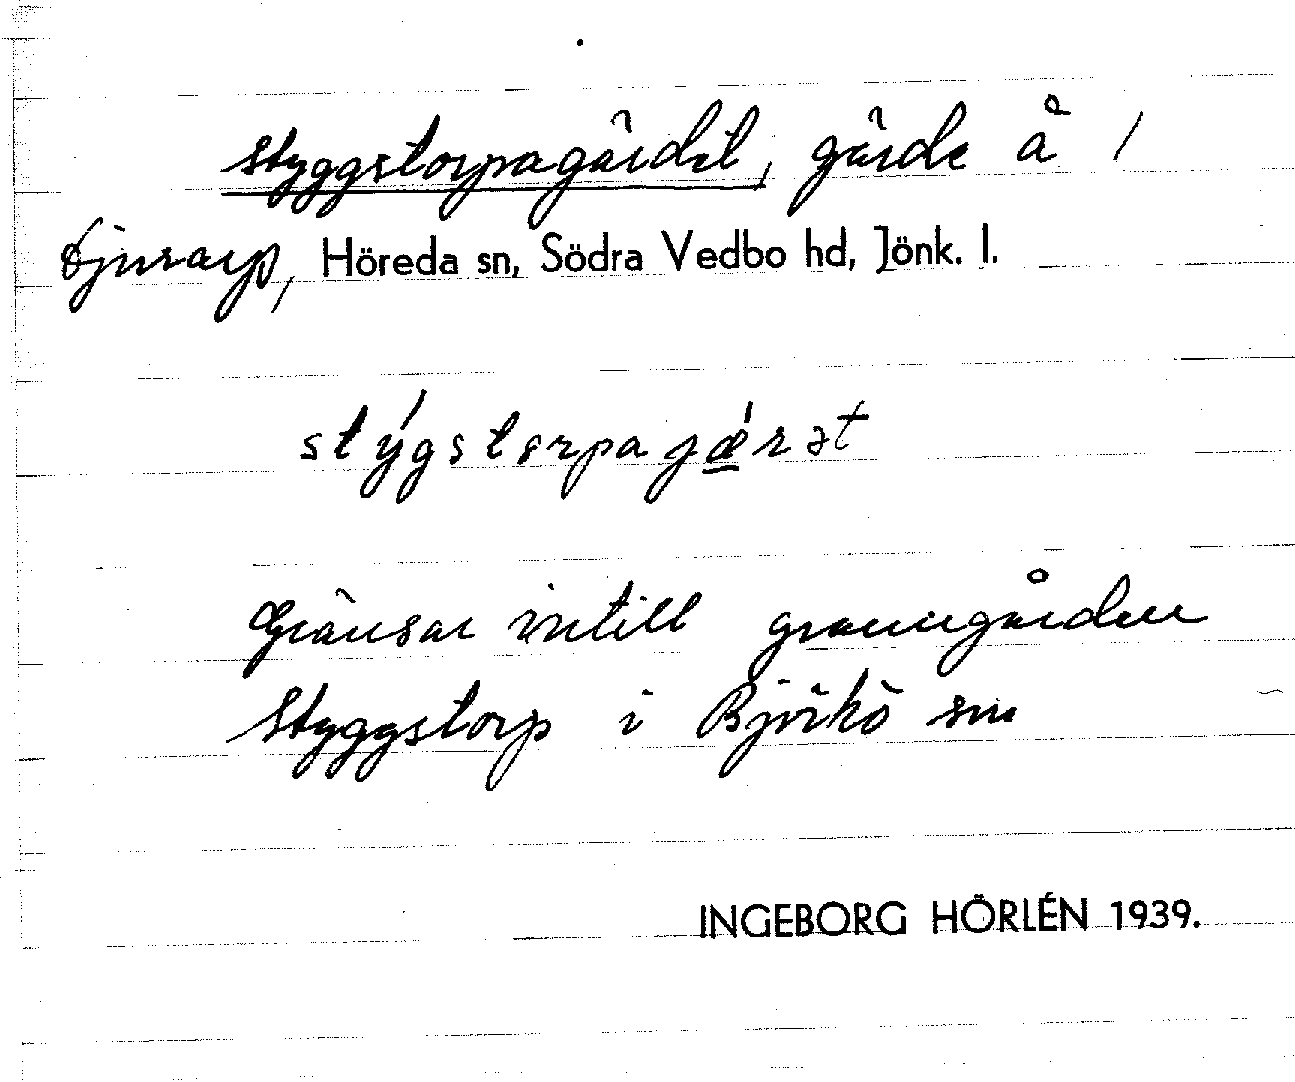 Styggstorpagärdet, gärde å /
Djurarp, Höreda sn, Södra Vedbo hd, Jönk. l.
stýgstorpagǽrət
Gränsar intill granngården
Styggstorp i Björkö sn
INGEBORG HÖRLÉN 1939.